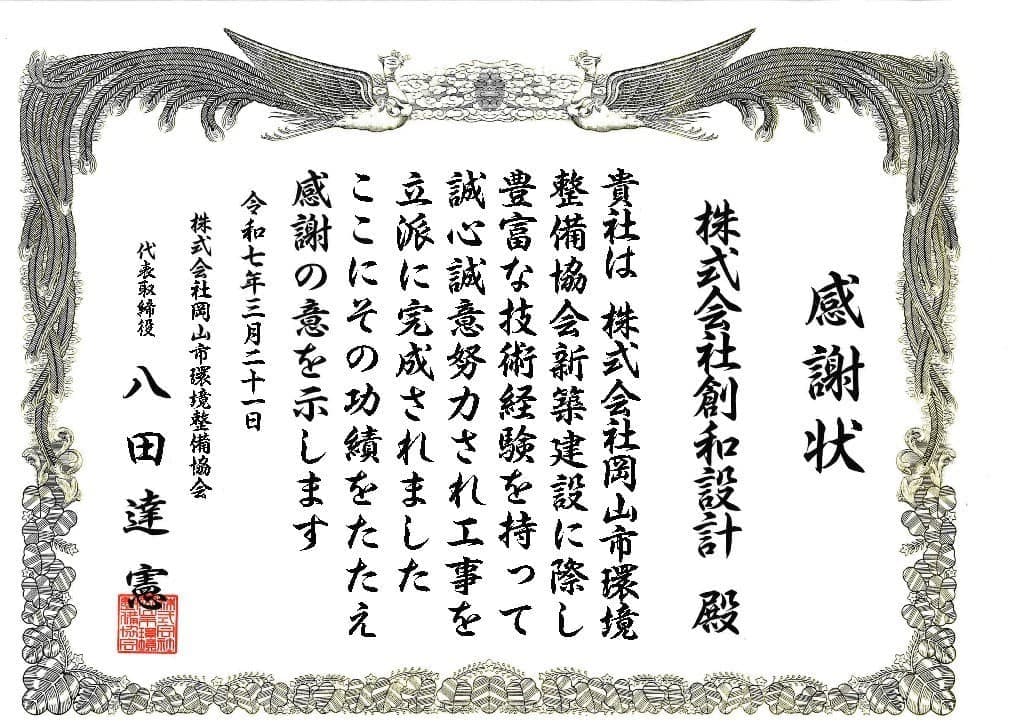 感謝状
株式会社創和設計 殿
貴社は 株式会社岡山市環境
整備協会新築建設に際し
豊富な技術経験を持って
誠心誠意努力され工事を
立派に完成されました
ここにその功績をたたえ
感謝の意を示します
令和七年三月二十一日
株式会社岡山市環境整備協会
代表取締役 八田達憲